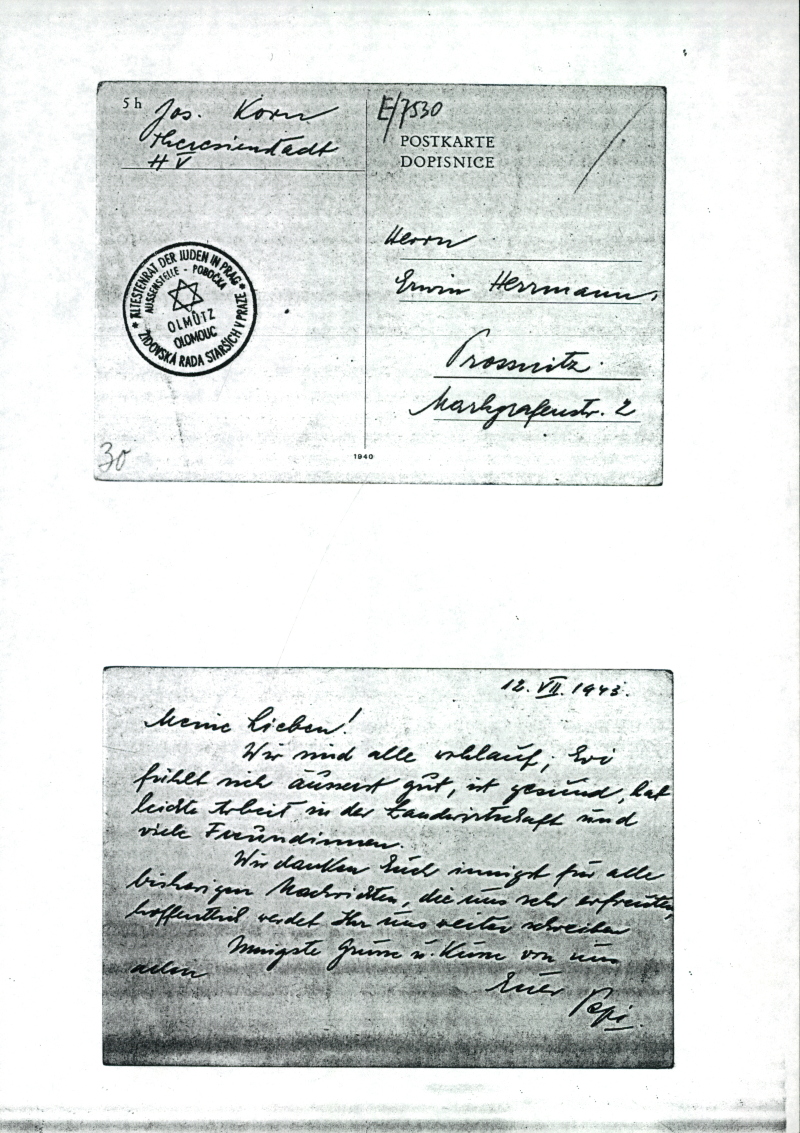 5 h
Jos. Korn
Theresienstadt
H V
E/7530
POSTKARTE
DOPISNICE
Herrn
Erwin Herrmann,
Prossnitz.
Markgrafenstr. 2
* ÄLTESTENRAT DER JUDEN IN PRAG *
AUSSENSTELLE - POBOČKA
OLMÜTZ
OLOMOUC
ŽIDOVSKÁ RADA STARŠÍCH V PRAZE
30
1940
12. VII. 1943.
Meine Lieben!
Wir sind alle wohlauf, Evi
fühlt sich äusserst gut, ist gesund, hat
leichte Arbeit in der Landwirtschaft und
viele Freundinnen.
Wir danken Euch innigst für alle
bisherigen Nachrichten, die uns sehr erfreuten,
hoffentlich werdet Ihr uns weiter schreiben
Innigste Grüsse u. Küsse von uns
allen
Euer Pepi.